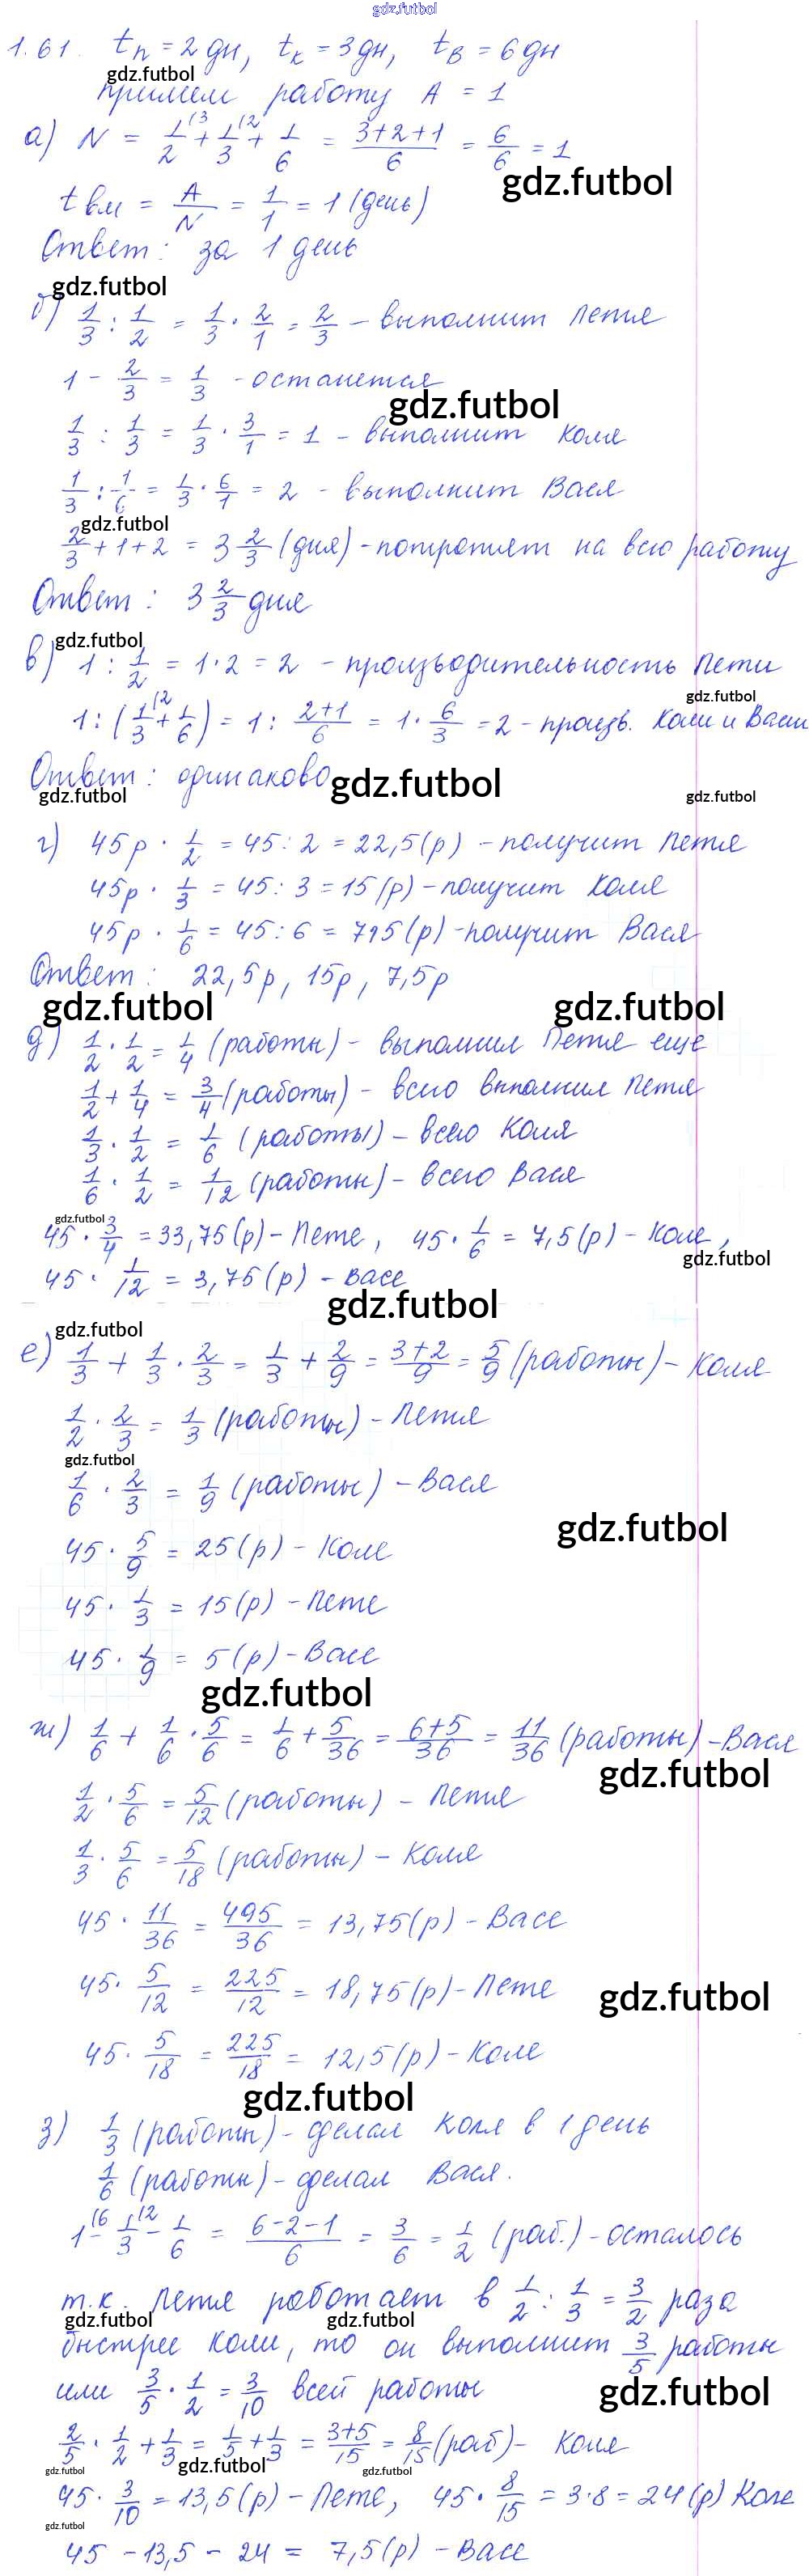 gdz.futbol
1.61. tп = 2 дн, tк = 3 дн, tв = 6 дн
gdz.futbol
примем работу A = 1
а) N = 1/2 (3 + 1/3 (2 + 1/6 = (3+2+1)/6 = 6/6 = 1
gdz.futbol
tвм = A/N = 1/1 = 1 (день)
Ответ: за 1 день
gdz.futbol
б) 1/3 : 1/2 = 1/3 · 2/1 = 2/3 – выполнит Петя
1 - 2/3 = 1/3 - останется
gdz.futbol
1/3 : 1/3 = 1/3 · 3/1 = 1 – выполнит Коля
1/3 : 1/6 = 1/3 · 6/1 = 2 - выполнит Вася
gdz.futbol
2/3 + 1 + 2 = 3 2/3 (дня) - потратят на всю работу
Ответ: 3 2/3 дня
gdz.futbol
в) 1 : 1/2 = 1 · 2 = 2 - производительность Пети
gdz.futbol
1 : (1/3 (2 + 1/6) = 1 : (2+1)/6 = 1 · 6/3 = 2 - произв. Коли и Васи
Ответ: одинаково
gdz.futbol
gdz.futbol
gdz.futbol
г) 45р · 1/2 = 45 : 2 = 22,5(р) - получит Петя
45р · 1/3 = 45 : 3 = 15(р) – получит Коля
45р · 1/6 = 45 : 6 = 795(р) - получит Вася
Ответ: 22,5р, 15р, 7,5р
gdz.futbol
gdz.futbol
д) 1/2 · 1/2 = 1/4 (работы) - выполнил Петя еще
1/2 + 1/4 = 3/4 (работы) - всего выполнил Петя
1/3 · 1/2 = 1/6 (работы) – всего Коля
1/6 · 1/2 = 1/12 (работы) - всего Вася
gdz.futbol
45 · 3/4 = 33,75(р) - Пете, 45 · 1/6 = 7,5(р) - Коле,
gdz.futbol
45 · 1/12 = 3,75(р) - Васе
gdz.futbol
gdz.futbol
е) 1/3 + 1/3 · 2/3 = 1/3 + 2/9 = (3+2)/9 = 5/9 (работы) – Коля
1/2 · 2/3 = 1/3 (работы) - Петя
gdz.futbol
1/6 · 2/3 = 1/9 (работы) - Вася
gdz.futbol
45 · 5/9 = 25(р) - Коле
45 · 1/3 = 15(р) - Пете
45 · 1/9 = 5(р) - Васе
gdz.futbol
ж) 1/6 + 1/6 · 5/6 = 1/6 + 5/36 = (6+5)/36 = 11/36 (работы) - Вася
gdz.futbol
1/2 · 5/6 = 5/12 (работы) - Петя
1/3 · 5/6 = 5/18 (работы) - Коля
45 · 11/36 = 495/36 = 13,75(р) - Васе
45 · 5/12 = 225/12 = 18,75(р) - Пете
gdz.futbol
45 · 5/18 = 225/18 = 12,5(р) - Коле
gdz.futbol
з) 1/3 (работы) - сделал Коля в 1 день
1/6 (работы) - сделал Вася.
1 (6 - 1/3 (2 - 1/6 = (6-2-1)/6 = 3/6 = 1/2 (раб.) - осталось
т.к. Петя работает в 1/2 : 1/3 = 3/2 раза
gdz.futbol
gdz.futbol
быстрее Коли, то он выполнит 3/5 работы
gdz.futbol
или 3/5 · 1/2 = 3/10 всей работы
2/5 · 1/2 + 1/3 = 1/5 + 1/3 = (3+5)/15 = 8/15 (раб) - Коля
gdz.futbol
gdz.futbol
gdz.futbol
45 · 3/10 = 13,5(р) - Пете, 45 · 8/15 = 3·8 = 24(р) Коле
gdz.futbol
45 - 13,5 - 24 = 7,5(р) - Васе